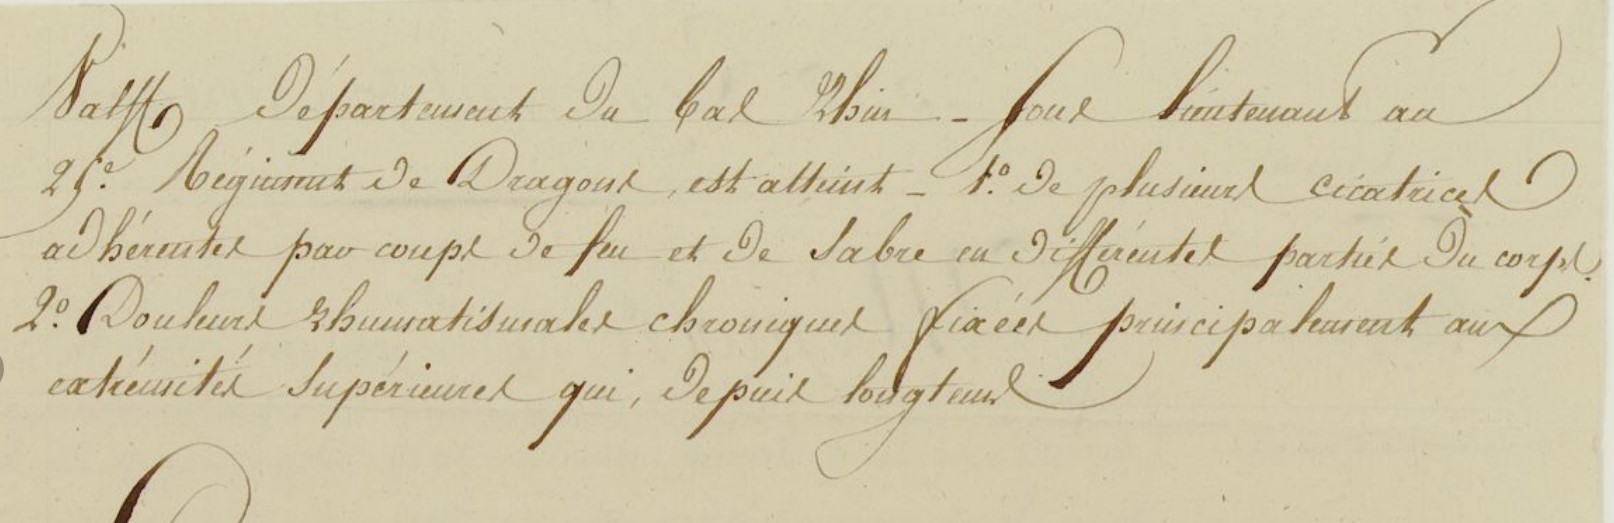 Valff Département du bas Rhin - sous lieutenant au
25e. Régiment de Dragons, est atteint - 1.º de plusieurs cicatrices
adhérentes par coups de feu et de Sabre en différentes parties du corps.
2.º Douleurs rhumatismales chroniques fixées principalement aux
extrémités supérieures qui, depuis longtems